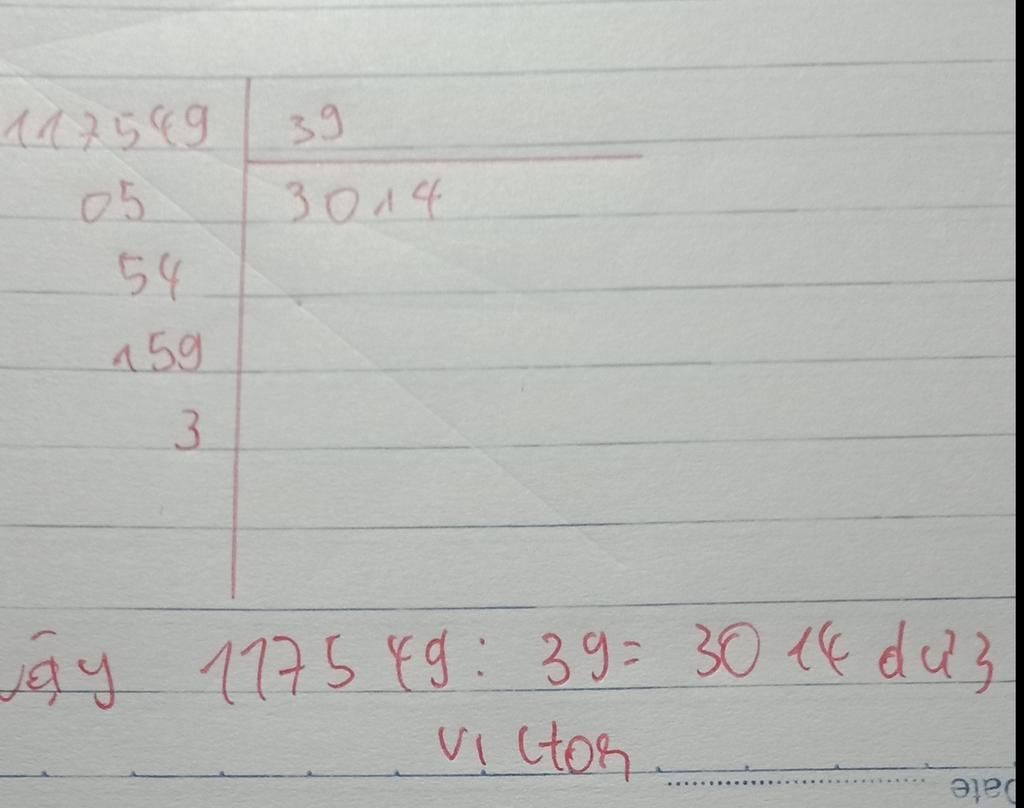 117549 39
05 3014
54
159
3
Vậy 117549: 39= 3014 dư 3
victor
Date